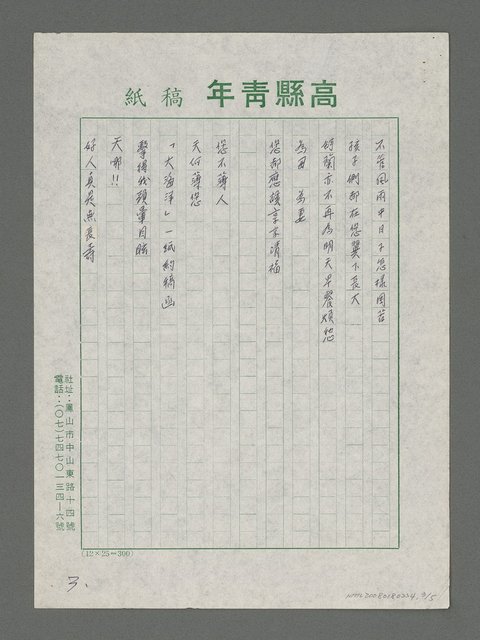 高縣青年 稿紙
不管風雨中日子怎樣困苦
孩子們都在您翼下長大
好蘭亦不再為明天早餐煩惱
為母 為妻
您都應該享享清福
您不薄人
天何薄您
「大海洋」一紙約稿函
擊得我頭暈目眩
天哪!!
好人真是無長壽
社址:鳳山市中山東路十四號
電話:(〇七)七四七〇一三四—六號
(12×25=300)
3、